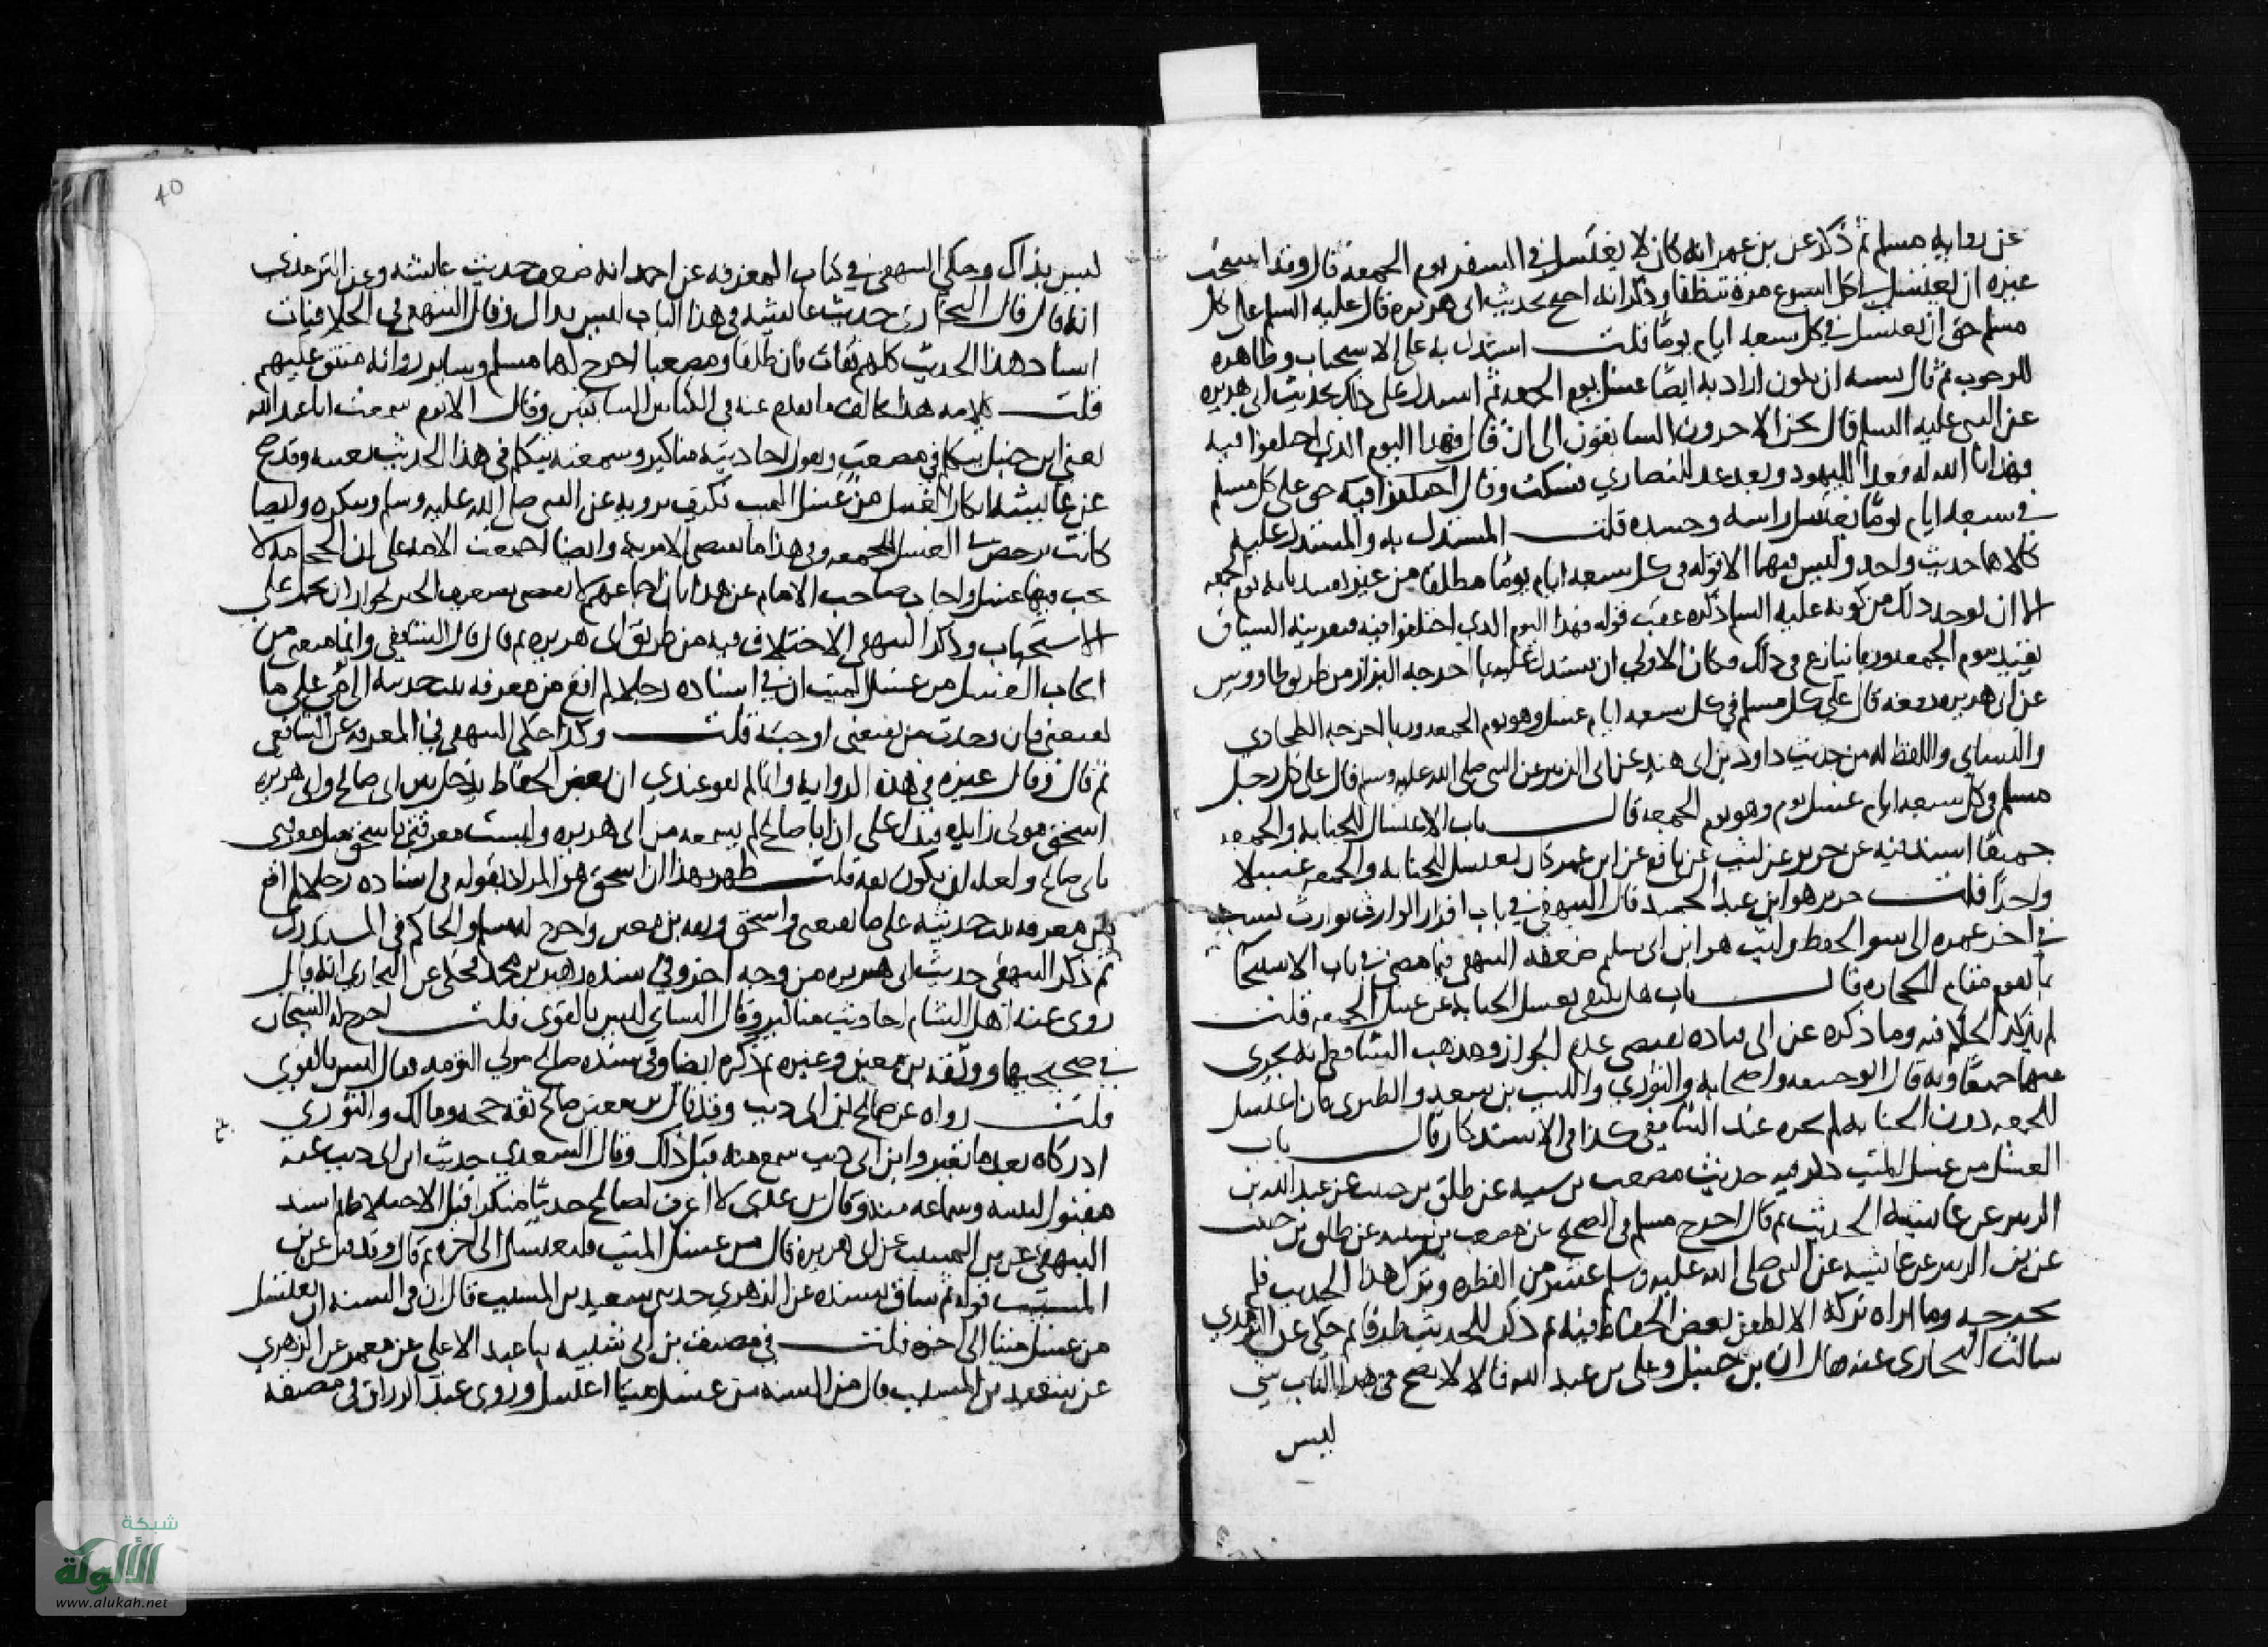 عن رواية مسلم ثم ذكر عن بن عمر انه كان لا يغتسل في السفر يوم الجمعة قال وقد استحب
غيره ان يغتسل كل اسبوع مرة تنظفا وذكر انه احتج بحديث ابي هريرة قال عليه السلم على كل
مسلم حق ان يغتسل في كل سبعة ايام يوما قلت استدل به على الاستحباب وظاهره
للوجوب ثم قال يشبه ان يكون اراد به ايضا غسل يوم الجمعة ثم استدل على ذلك بحديث ابي هريرة
عن النبي عليه السلم قال نحن الاخرون السابقون الى ان قال فهذا اليوم الذي اختلفوا فيه
فهدانا الله له فغدا لليهود وبعد غد للنصارى فسكت وقال حق على كل مسلم
في سبعة ايام يوما يغسل راسه وجسده قلت المستدل به والمستدل عليه
كلاهما حديث واحد وليس فيهما الا قوله في كل سبعة ايام يوما مطلقا من غير تقييد بانه يوم الجمعة
الا ان يوجد ذلك من كونه عليه السلم ذكره عقب قوله فهذا اليوم الذي اختلفوا فيه فقرينة السياق
تقيده بيوم الجمعة وربما ينازع في ذلك فكان الاولى ان يستدل عليه بما اخرجه البزار من طريق طاووس
عن ابي هريرة رفعه قال على كل مسلم في كل سبعة ايام غسل وهو يوم الجمعة وبما اخرجه الطحاوي
والنساي واللفظ له من حديث داود بن ابي هند عن ابي الزبير عن النبي صلى الله عليه وسلم قال على كل رجل
مسلم في كل سبعة ايام غسل يوم وهو يوم الجمعة قال باب الاغتسال للجنابة والجمعة
جميعا اسند فيه عن جرير عن ليث عن نافع عن ابن عمر كان يغتسل للجنابة والجمعة غسلا
واحدا قلت جرير هو ابن عبد الحميد قال البيهقي في باب اقرار الوارث بوارث نسب
في اخر عمره الى سو الحفظ وليث هو ابن ابي سليم ضعفه البيهقي فيما مضى في باب الاستنجا
بما يقوم مقام الحجارة قال باب هل يكتفى بغسل الجنابة عن غسل الجمعة قلت
لم يذكر الخلاف فيه وما ذكره عن ابي قتادة يقتضي عدم الجواز ومذهب الشافعي انه يجزي
عنهما جميعا وبه قال ابو حنيفة واصحابه والثوري والليث بن سعد والطبري فان اغتسل
للجمعة دون الجنابة لم يجزه عند الشافعي كذا في الاستذكار قال باب
الغسل من غسل الميت ذكر فيه حديث مصعب بن شيبة عن طلق بن حبيب عن عبد الله بن
الزبير عن عائشة الحديث ثم قال اخرج مسلم في الصحيح عن مصعب بن شيبة عن طلق بن حبيب
عن بن الزبير عن عائشة عن النبي صلى الله عليه وسلم عشر من الفطرة وترك هذا الحديث فلم
يخرجه وما اراه تركه الا لطعن بعض الحفاظ فيه ثم ذكر للحديث طرقا ثم حكى عن الترمذي
سالت البخاري عنه فقال ان بن حنبل وعلي بن عبد الله قالا لا يصح في هذا الباب شي
ليس
40
ليس بذاك وحكى البيهقي في كتاب المعرفة عن احمد انه ضعف حديث عائشة وعن الترمذي
انه قال قال البخاري حديث عائشة في هذا الباب ليس بذاك وقال البيهقي في الخلافيات
اسناد هذا الحديث كلهم ثقات فان طلقا ومصعبا اخرج لهما مسلم وساير رواته متفق عليهم
قلت كلامه هذا مخالف ما تقدم عنه في الكتابين السابقين وقال الاثرم سمعت ابا عبد الله
يعني ابن حنبل يتكلم في مصعب ويقول احاديثه مناكير وسمعته يتكلم في هذا الحديث بعينه وقد صح
عن عائشة انكار الغسل من غسل الميت فكيف ترويه عن النبي صلى الله عليه وسلم وتنكره وايضا
كانت ترخص في الغسل للجمعة وفي هذا ما الامر به وايضا اجمعت الامة على ان الحجامة لا
يجب فيها غسل واجاب صاحب الامام عن هذا بان اجماعهم لا يقتضي تضعيف الخبر لجواز ان يحمل على
الاستحباب وذكر البيهقي الاختلاف فيه من طريق ابي هريرة ثم قال قال الشافعي وانما منعني من
ايجاب الغسل من غسل الميت ان في اسناده رجلا لم اقع من معرفة ثبت حديثه الى يومي على ما
يقنعني فان وجدت من يقنعني اوجبته قلت وكذا حكى البيهقي في المعرفة عن الشافعي
ثم قال وقال غيره في هذه الرواية وانما لم يقو عندي ان بعض الحفاظ يدخل بين ابي صالح وابي هريرة
اسحق مولى زايدة فيدل على ان ابا صالح لم يسمعه من ابي هريرة وليست معرفتي باسحق مثل معرفتي
بابي صالح ولعله ان يكون ثقة قلت ظهر بهذا ان اسحق هو المراد بقوله في اسناده رجلا لم اقع
من معرفة ثبت حديثه على ما يقنعني واسحق وثقه بن معين واخرج له مسلم والحاكم في المستدرك
ثم ذكر البيهقي حديث ابي هريرة من وجه اخر وفي سنده زهير بن محمد فحكى عن البخاري انه قال
روى عنه اهل الشام احاديث مناكير وقال النساي ليس بالقوي قلت اخرج له الشيخان
في صحيحيهما ووثقه بن معين وغيره ثم ذكره ايضا وفي سنده صالح مولى التومة فقال ليس بالقوي
قلت رواه عن صالح ابن ابي ذيب وقد قال بن معين صالح ثقة حجة ومالك والثوري
ادركاه بعد ما تغير وابن ابي ذيب سمع منه قبل ذلك وقال السعدي حديث ابن ابي ذيب عنه
مقبول لسنه وسماعه منه وقال بن عدي لا اعرف لصالح حديثا منكرا قبل الاختلاط ثم اسند
البيهقي عن بن المسيب عن ابي هريرة قال من غسل الميت فليغتسل الى اخره ثم قال وقد قيل عن بن
المسيب قوله ثم ساق بسنده عن الزهري حدثني سعيد بن المسيب قال ان في السنة ان يغتسل
من غسل ميتا الى اخره قلت في مصنف بن ابي شيبة ثنا عبد الاعلى عن معمر عن الزهري
عن سعيد بن المسيب قال من السنة من غسل ميتا اغتسل وروى عبد الرزاق في مصنفه
شبكة
الألوكة
www.alukah.net